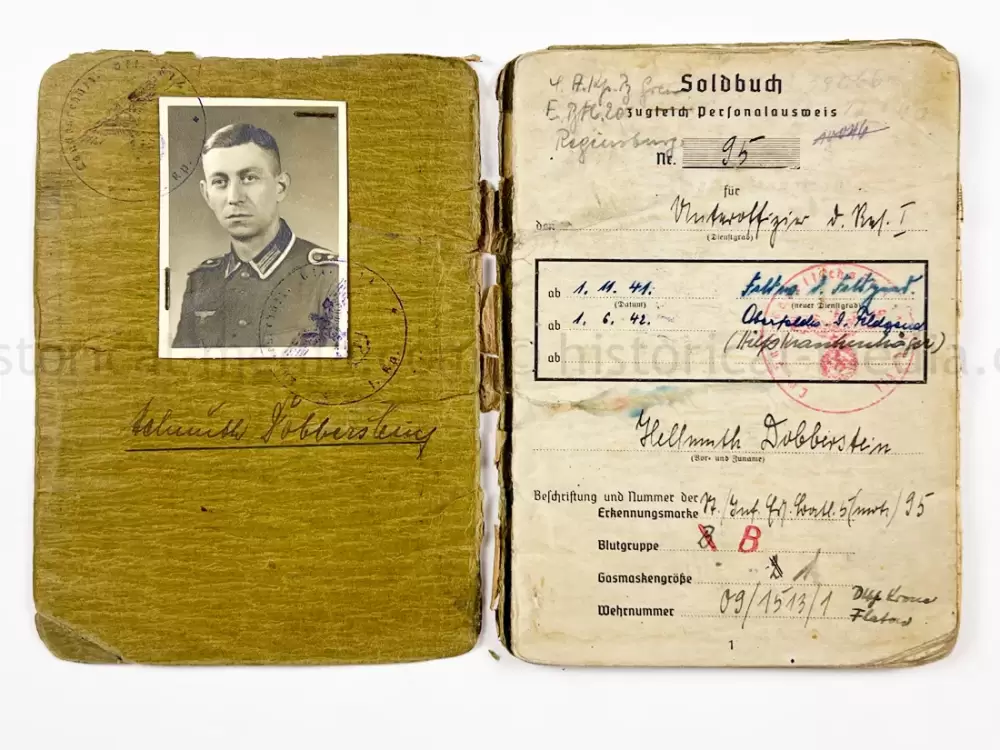 Hellmuth Dobberstein
Soldbuch
zugleich Personalausweis
Regensburg
Nr. 95
für
den Unteroffizier d. Res. I
(Dienstgrad)
ab 1. 11. 41.
(Datum)
(neuer Dienstgrad)
ab 1. 6. 42. Oberfeldw. d. Feldgend.
ab
Hellmuth Dobberstein
(Vor- und Zuname)
Beschriftung und Nummer der
Erkennungsmarke St./Inf. Ers. Batl. 5 (mot) / 95
Blutgruppe B B
Gasmaskengröße 2 1
Wehrnummer 09/1513/1
Flatow
1
historical-media.c